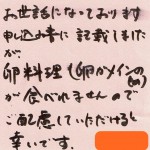 お世話になっております
申し込み書に記載しました
が、
卵料理(卵がメインのもの)
が食べれませんので
ご配慮していただけると
幸いです。